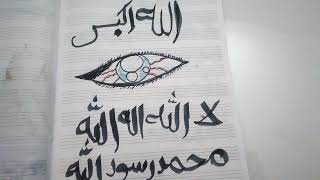 الله اكبر
لا الله اله الله
محمد رسود الله